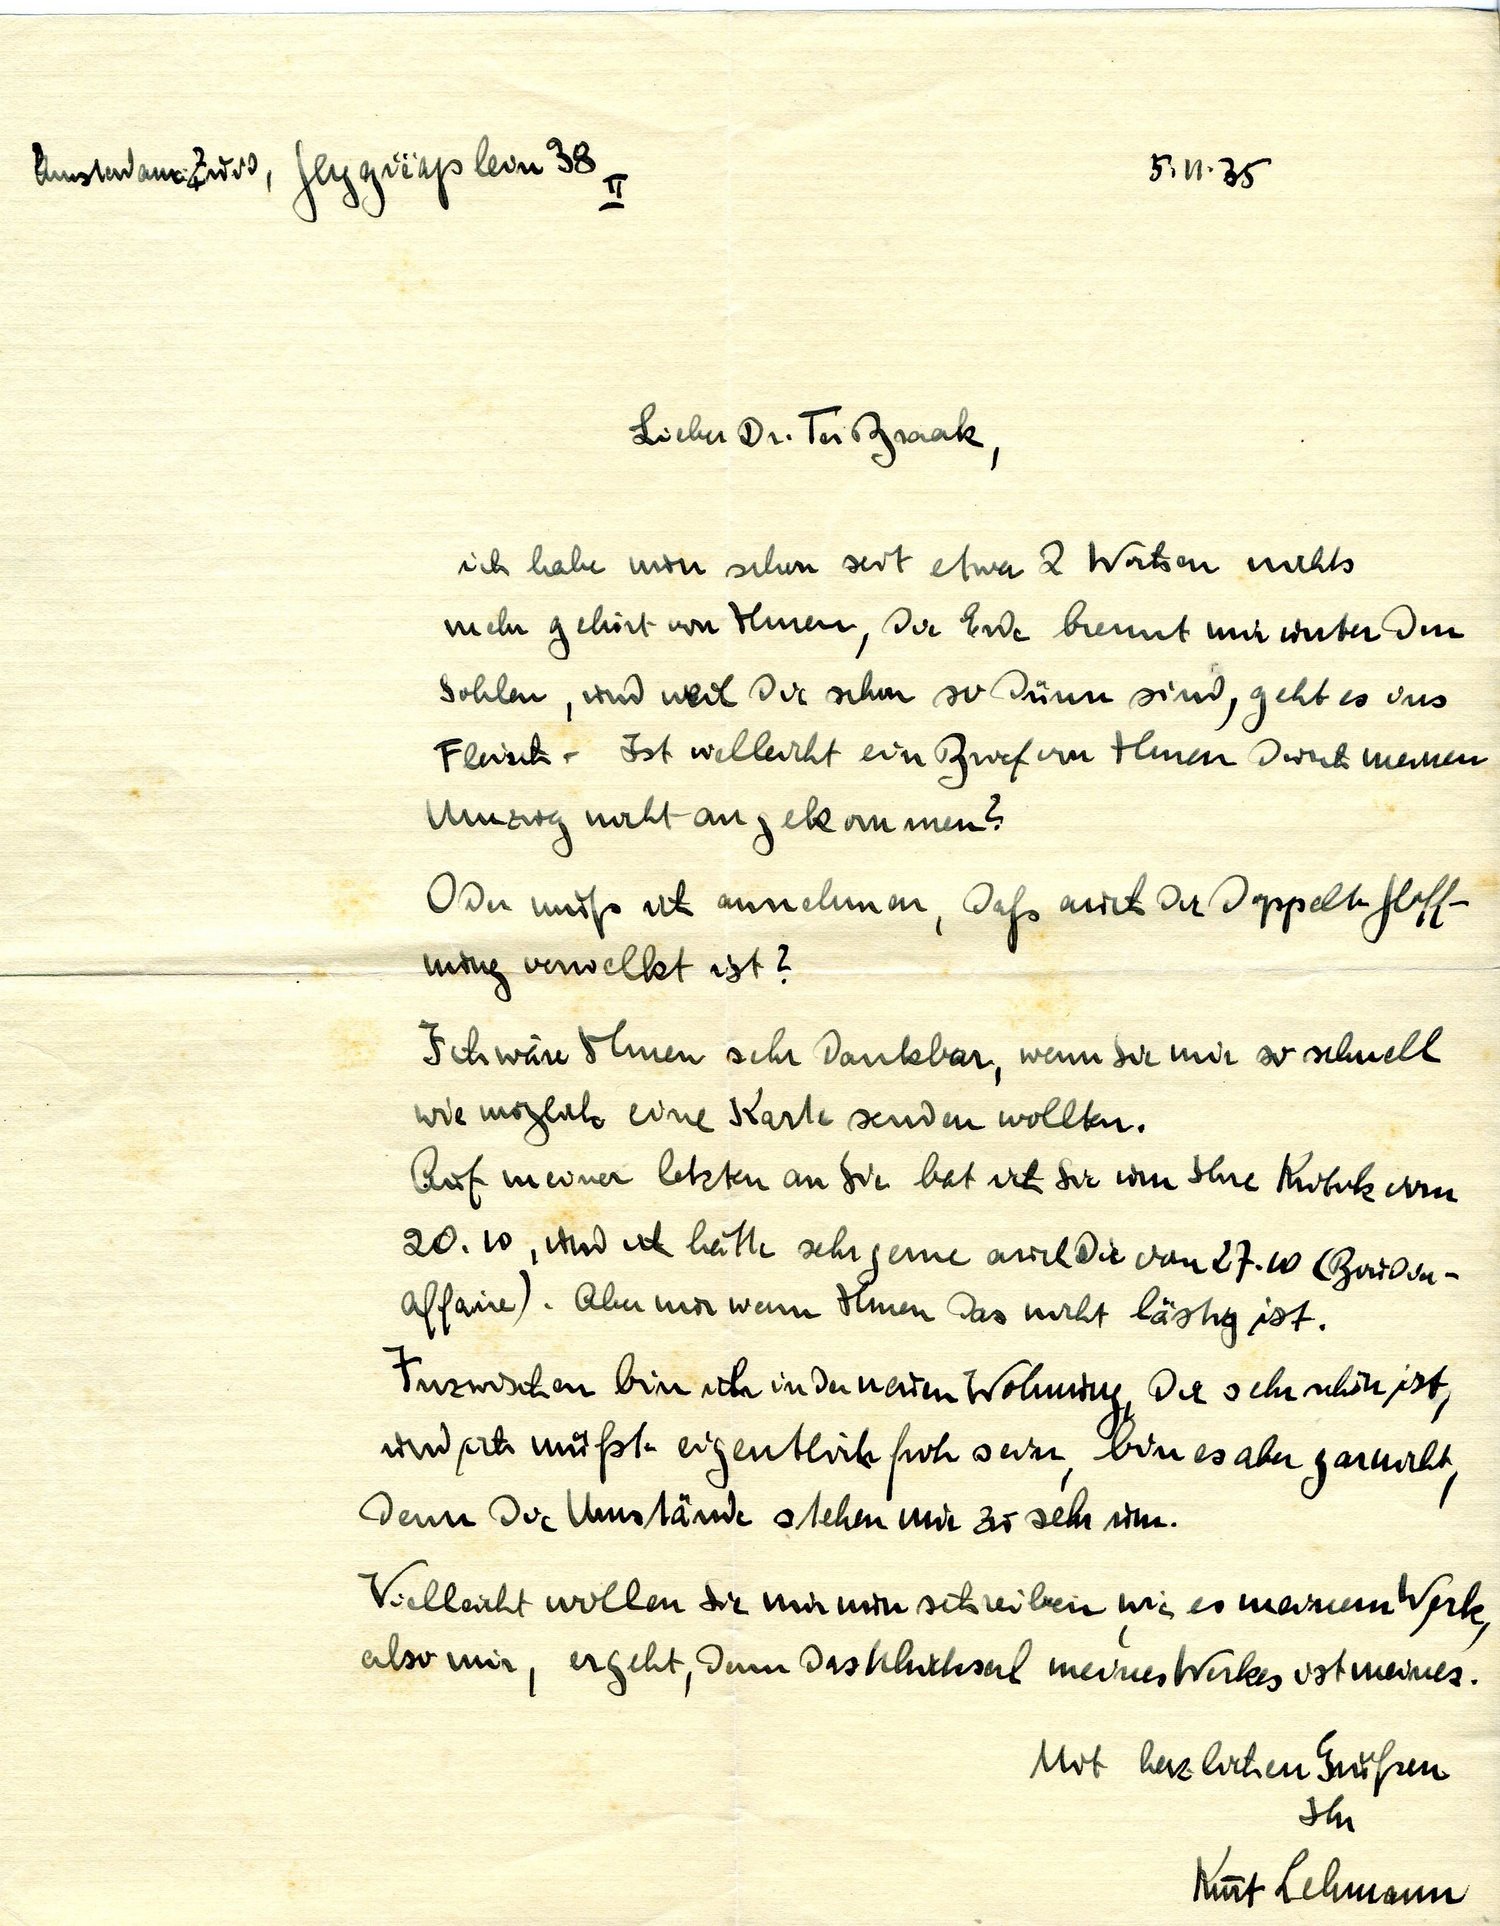 Amsterdam-Zuid, Heygiëaplein 38 II
5.11.35
Lieber Dr. Ter Braak,
ich habe nun schon seit etwa 2 Wochen nichts
mehr gehört von Ihnen, die Erde brennt mir unter den
Sohlen, und weil die schon so dünn sind, geht es ins
Fleisch - Ist vielleicht ein Brief von Ihnen durch meinen
Umzug nicht angekommen?
Oder muß ich annehmen, daß auch der doppelte Hoff-
nung verwelkt ist?
Ich wäre Ihnen sehr dankbar, wenn Sie mir so schnell
wie möglich eine Karte senden wollten.
Auf meiner letzten an Sie bat ich Sie um Ihre Kritik vom
20.10, und ich hätte sehr gerne auch die von 27.10
affaire). Aber nur wenn Ihnen das nicht lästig ist.
Inzwischen bin ich in der neuen Wohnung, die sehr schön ist,
und ich müßte eigentlich froh sein, bin es aber garnicht,
denn die Umstände stehen mir zu sehr um.
Vielleicht wollen Sie mir nun schreiben, wie es meinem Werk,
also mir, ergeht, denn das Schicksal meines Werkes ist meines.
Mit herzlichen Grüßen
Ihr
Kurt Lehmann